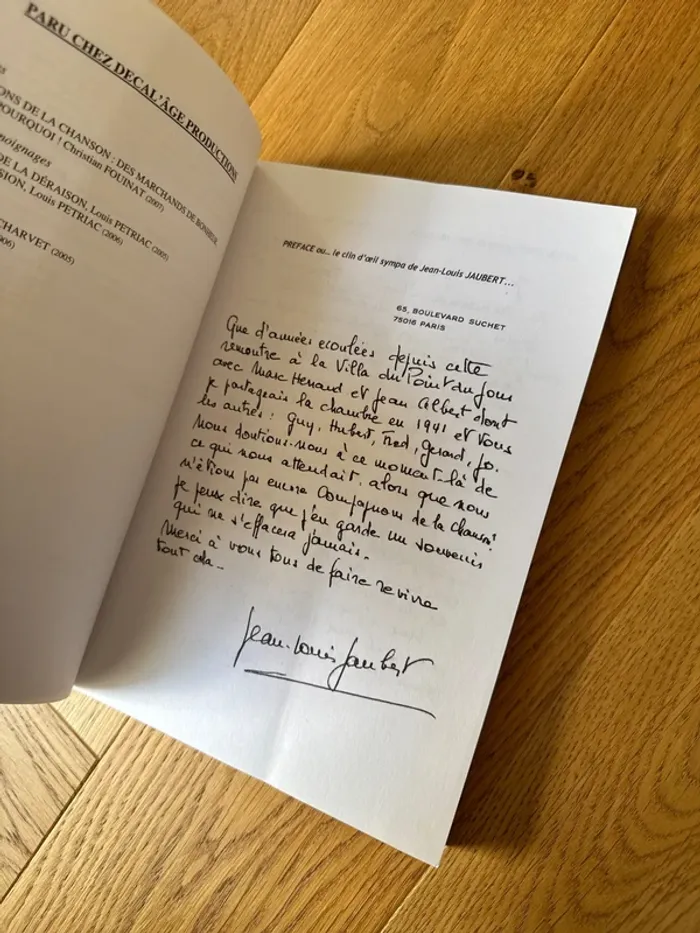 PARU CHEZ DECAL'ÂGE PRODUCTIONS
ONS DE LA CHANSON : DES MARCHANDS DE BONHEUR
POURQUOI ! Christian FOUINAT (2007)
moignages
DE LA DÉRAISON, Louis PETRIAC (2005)
SION, Louis PETRIAC (2006)
CHARVET (2005)
006)
PREFACE ou... le clin d'œil sympa de Jean-Louis JAUBERT...
65, BOULEVARD SUCHET
75016 PARIS
Que d'années écoulées depuis cette
rencontre à la Villa du Point du Jour
avec Marc Henaud et Jean Albert dont
je partageais la chambre en 1941 et vous
les autres : Guy, Hubert, Fred, Gérard, Jo.
Nous doutions-nous à ce moment-là de
ce qui nous attendait, alors que nous
n'étions pas encore Compagnons de la chanson ?
je peux dire que j'en garde un souvenir
qui ne s'effacera jamais.
Merci à vous tous de faire revivre
tout cela...
Jean-Louis Jaubert